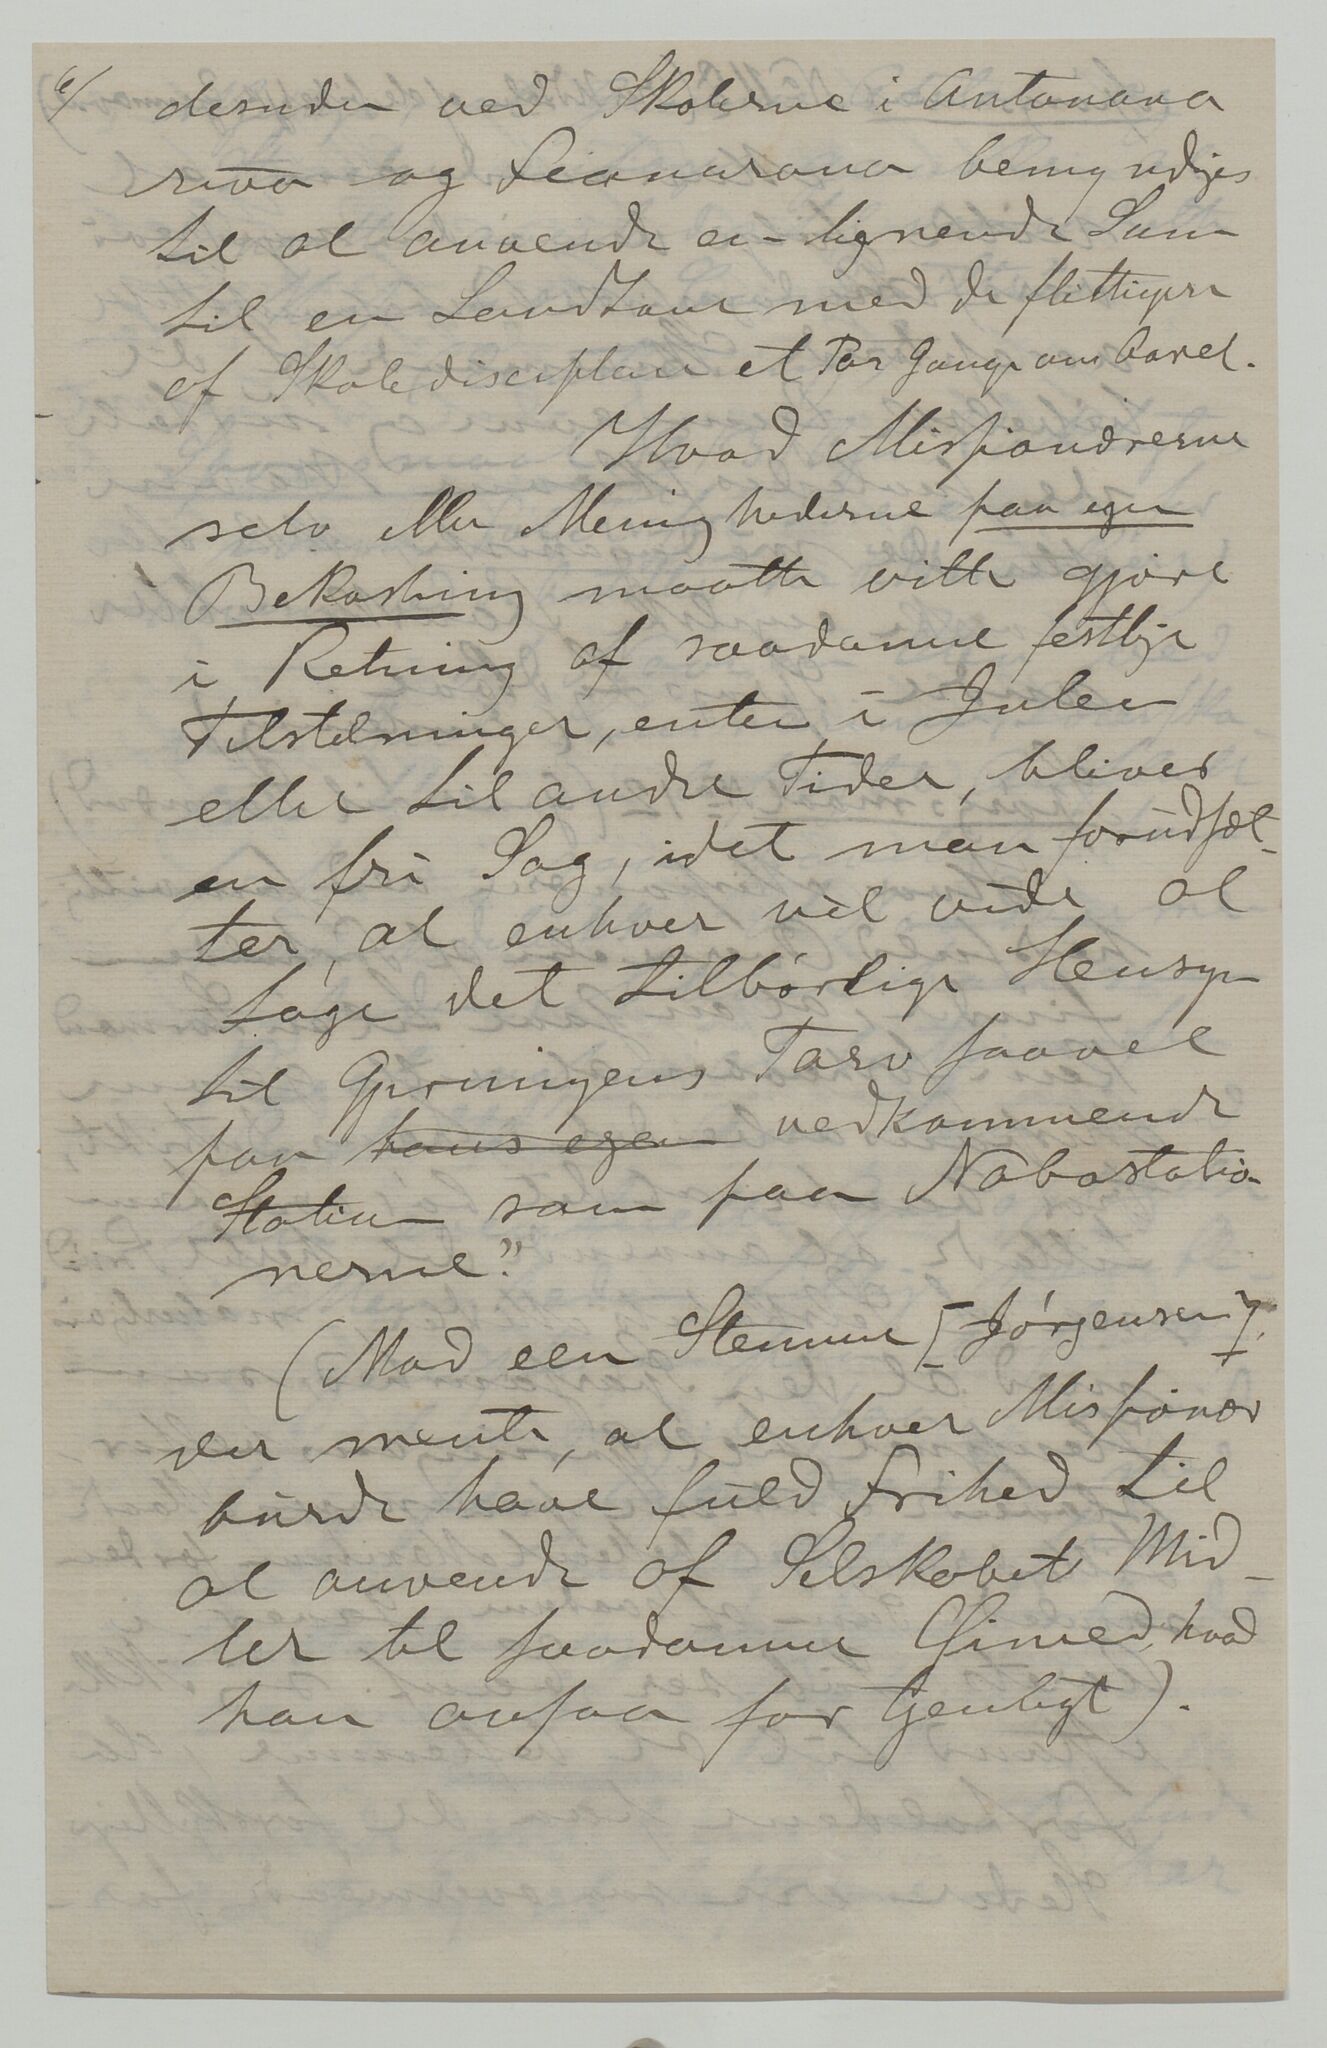 6/ desuden ved Skolerne i Antanana
rivo og Fianarana bemyndiges
til at anvende en lignende Sum
til en Landtour med de flittigere
af Skoledisciplene et Par Gange om Aaret.
Hvad Missionærerne
selv eller Menighederne paa egen
Bekostning maatte ville gjøre
i Retning af saadanne festlige
Tilstelninger, enten i Julen
eller til andre Tider, bliver
en fri Sag, idet man forudsæt-
ter, at enhver vil vide at
tage det tilbørlige Hensyn
til Gjerningens Tarv saavel
paa hans egen vedkommende
Station som paa Nabostatio-
nerne."
(Mod een Stemme [Jørgensen],
der mente, at enhver Missionær
burde have fuld Frihed til
at anvende af Selskabets Mid-
ler til saadanne Øiemed, hvad
han ansaa for tjenligt).